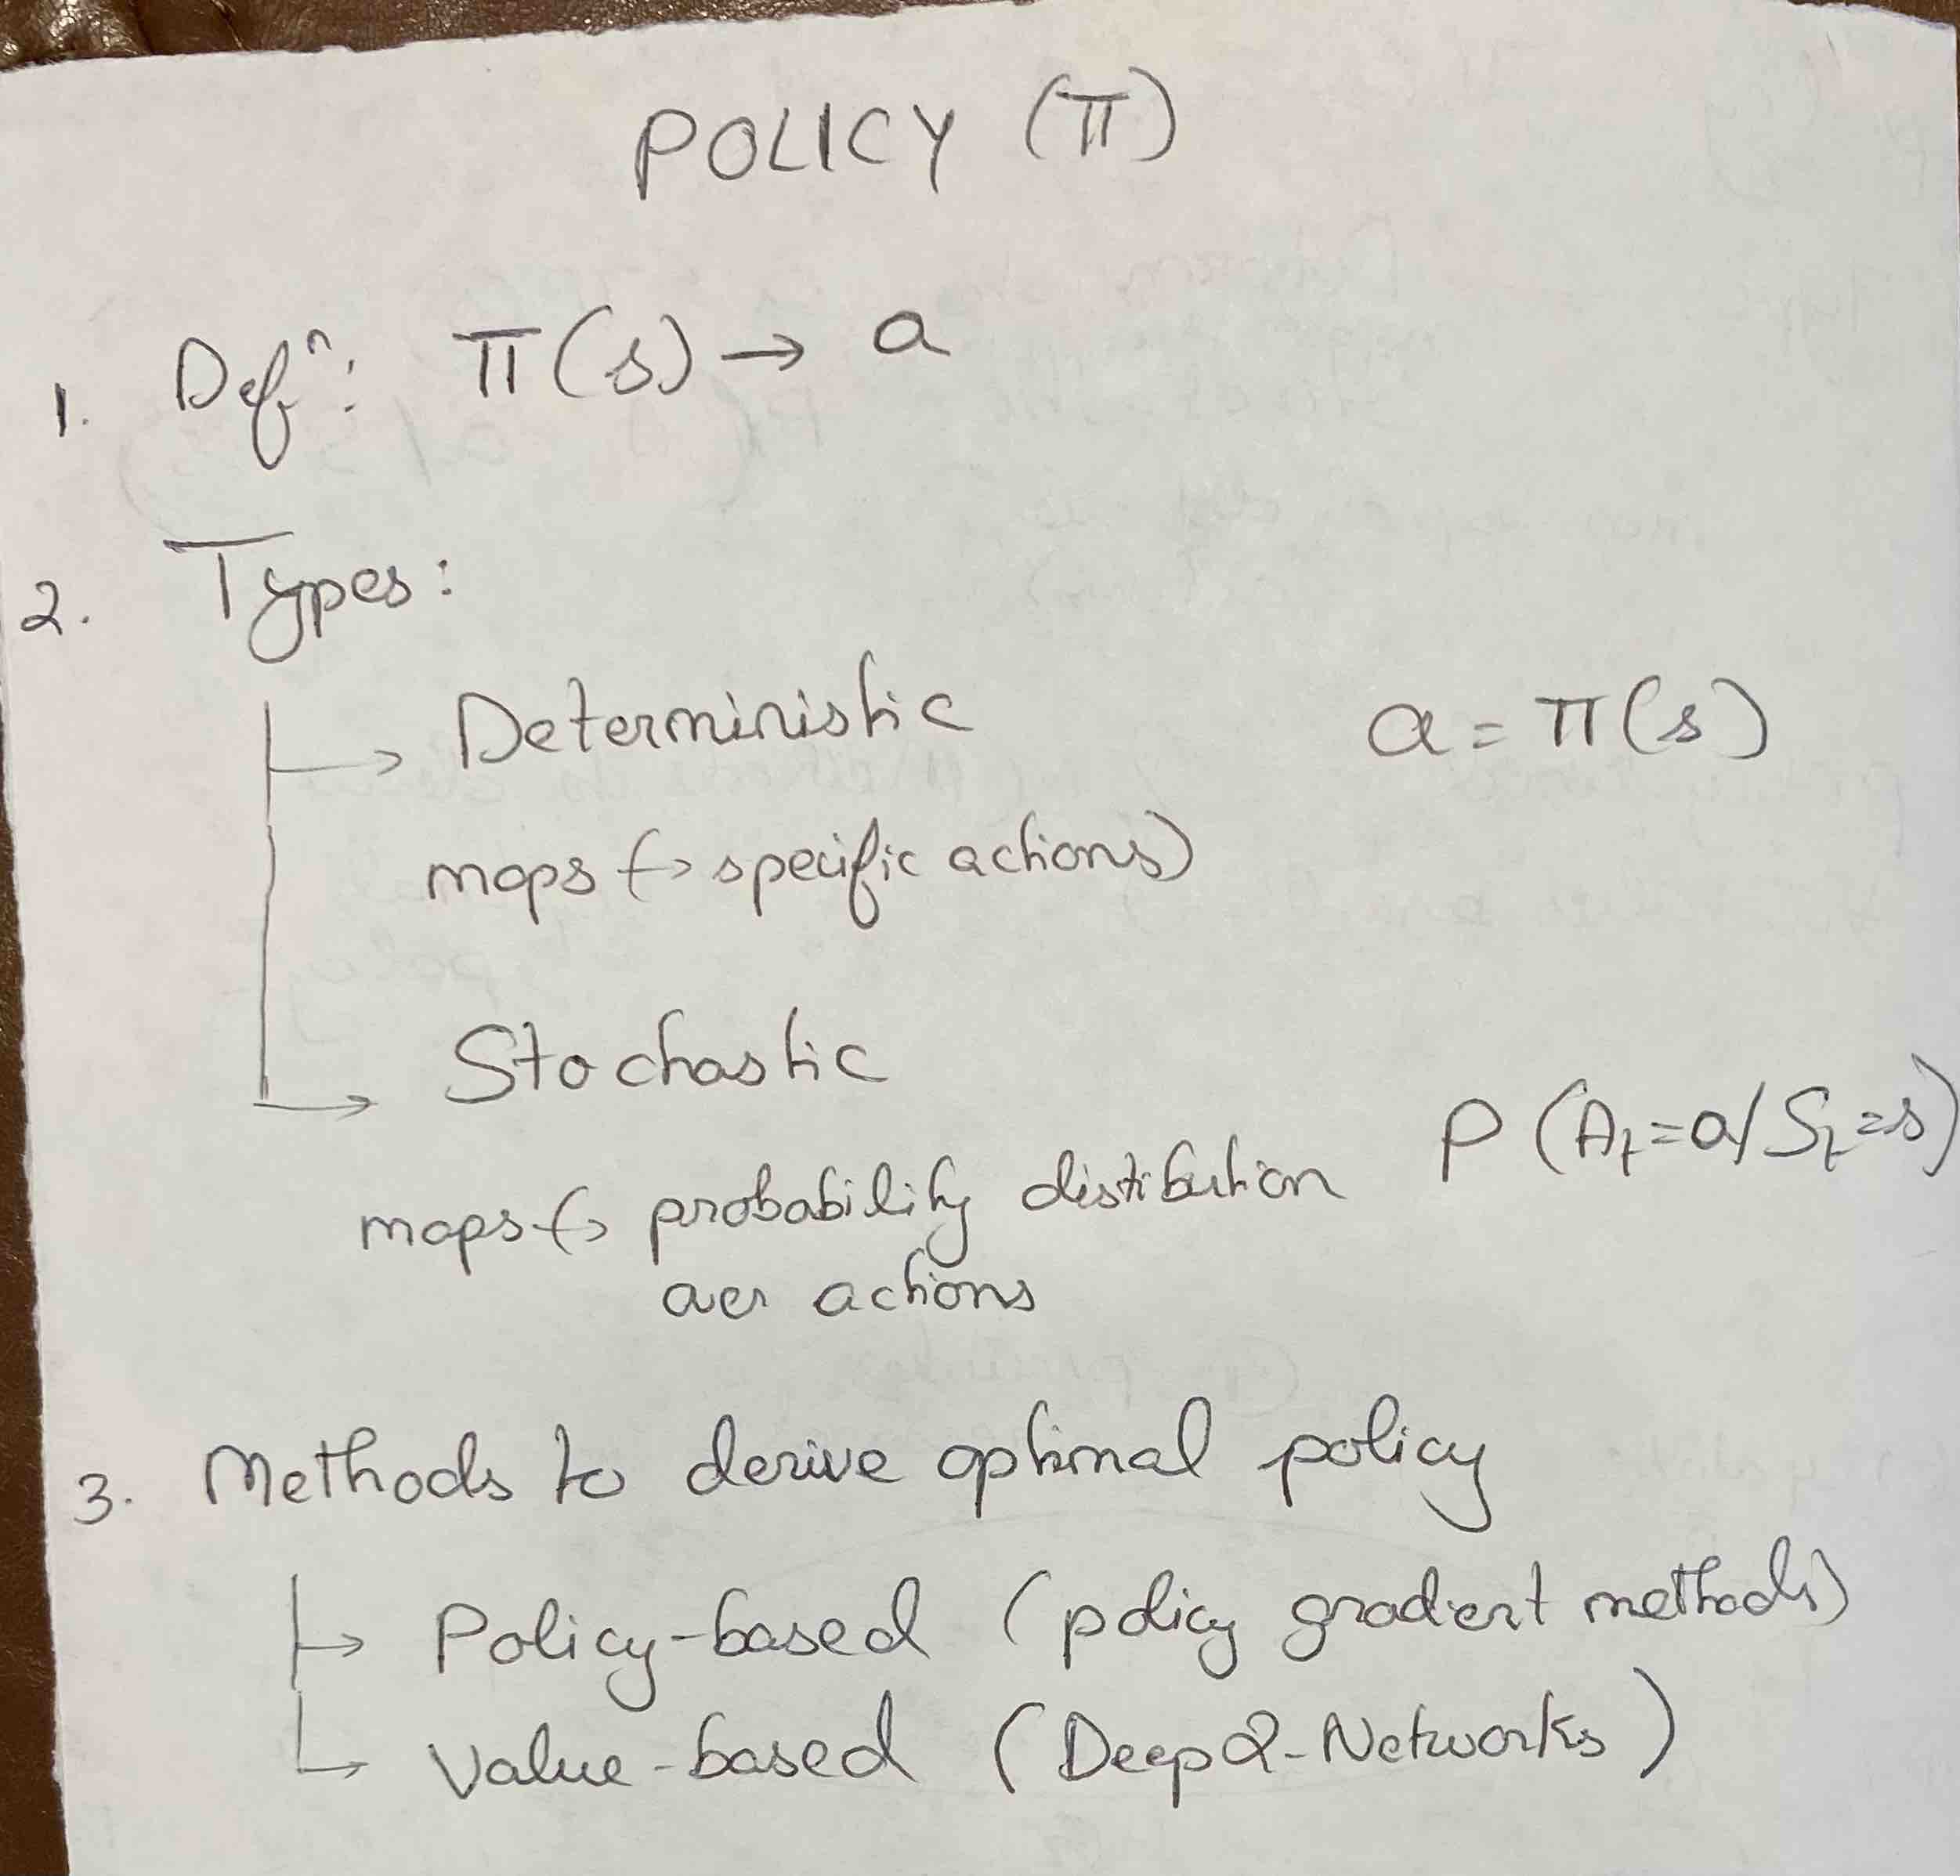 POLICY (π)
1. Defⁿ: π(s) → a
2. Types:
→ Deterministic a = π(s)
maps (→ specific actions)
→ Stochastic
P(At=a/St=s)
maps (→ probability distribution
over actions
3. Methods to derive optimal policy
→ Policy-based (policy gradient methods)
→ Value-based (Deep Q-Networks)